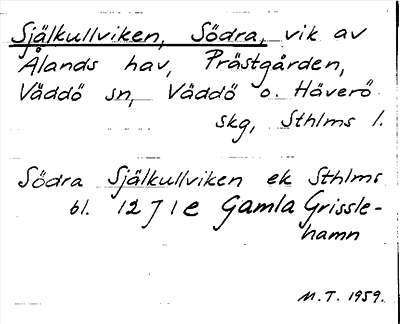 Själkullviken, Södra, vik av
Ålands hav, Prästgården,
Väddö sn, Väddö o. Häverö
skg, Sthlms l.
Södra Själkullviken ek Sthlms
bl. 12 J 1 e Gamla Grissle-
hamn
M.T. 1959.